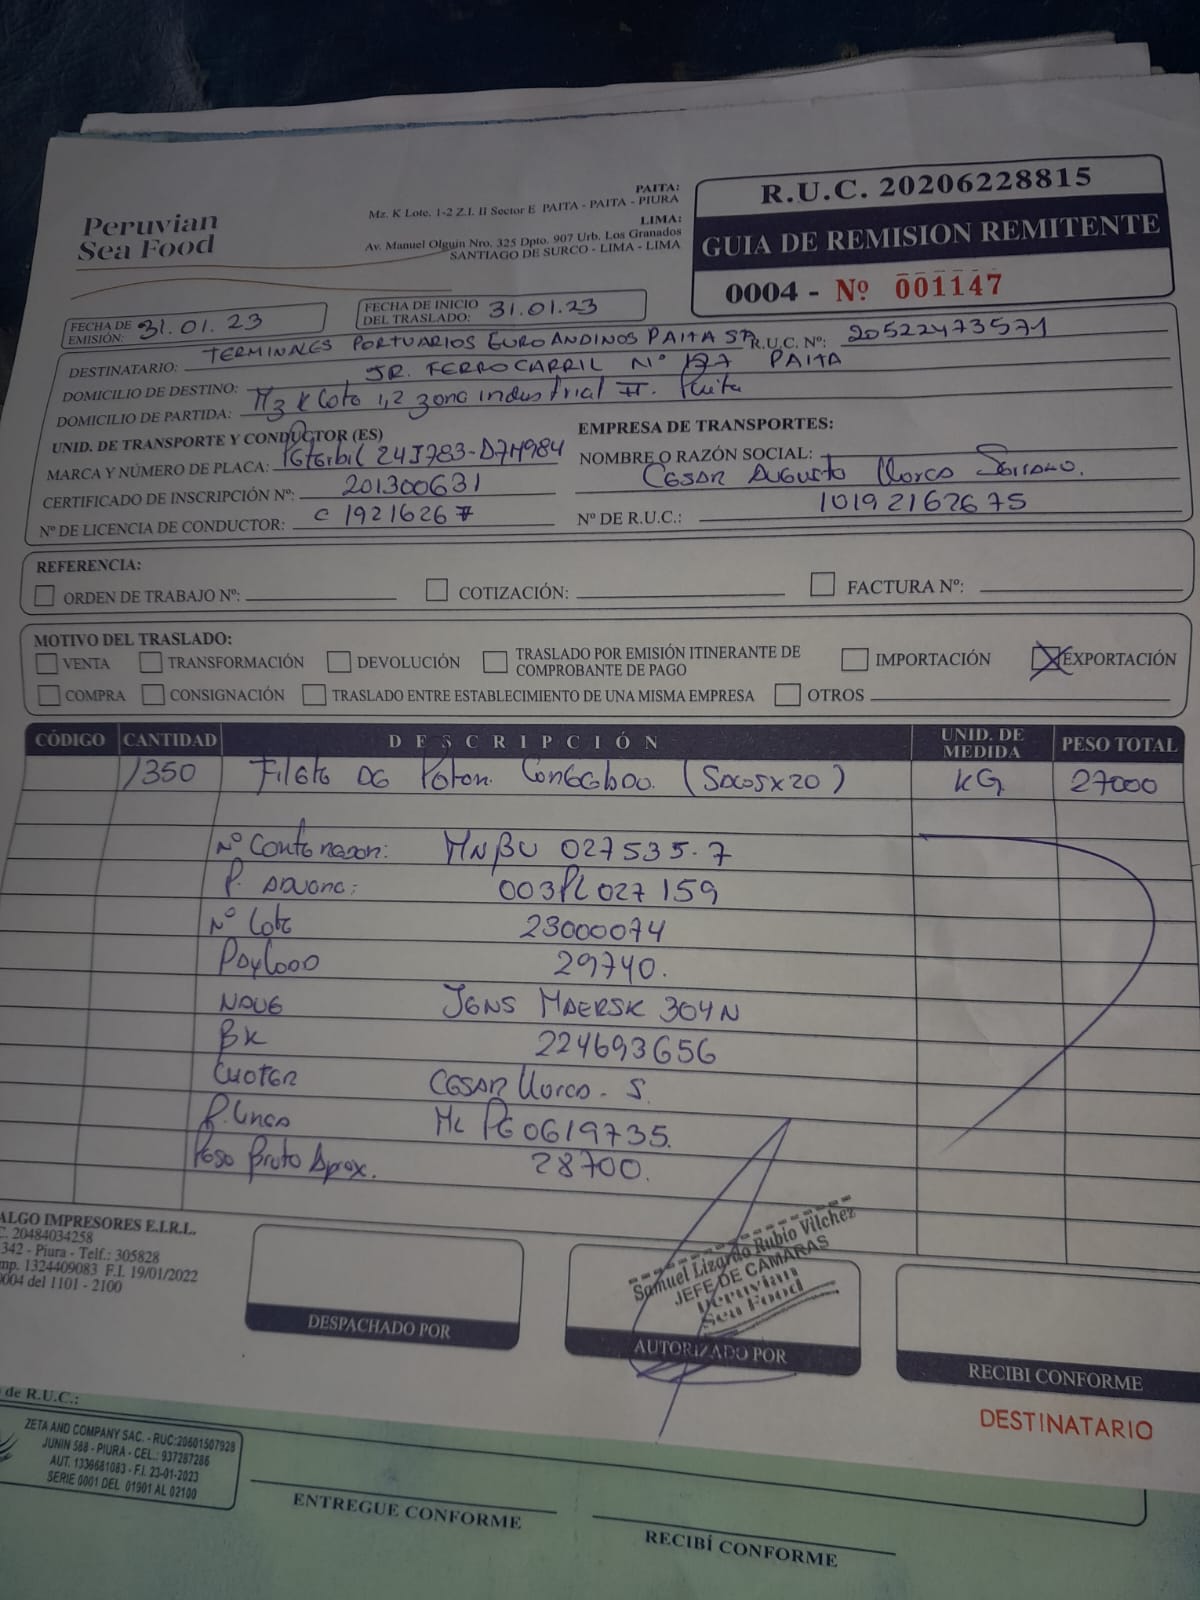 Peruvian
Sea Food
PAITA:
Mz. K Lote. 1-2 Z.I. II Sector E PAITA - PAITA - PIURA
LIMA:
Av. Manuel Olguin Nro. 325 Dpto. 907 Urb. Los Granados
SANTIAGO DE SURCO - LIMA - LIMA
R.U.C. 20206228815
GUIA DE REMISION REMITENTE
0004 - Nº 001147
FECHA DE EMISIÓN: 31.01.23
FECHA DE INICIO DEL TRASLADO: 31.01.23
DESTINATARIO: TERMINALES PORTUARIOS EUROANDINOS PAITA SA R.U.C. Nº: 20522473571
DOMICILIO DE DESTINO: JR. FERROCARRIL Nº 127 PAITA
DOMICILIO DE PARTIDA: Mz K Lote 1,2 zona industrial II. Paita
UNID. DE TRANSPORTE Y CONDUCTOR (ES)
MARCA Y NÚMERO DE PLACA: Peterbil 24J783-D7M984
CERTIFICADO DE INSCRIPCIÓN Nº: 201300631
Nº DE LICENCIA DE CONDUCTOR: C 19216267
EMPRESA DE TRANSPORTES:
NOMBRE O RAZÓN SOCIAL:
CESAR AUGUSTO Llorca Serrano.
Nº DE R.U.C.: 10192162675
REFERENCIA:
ORDEN DE TRABAJO Nº: COTIZACIÓN: FACTURA Nº:
MOTIVO DEL TRASLADO:
VENTA TRANSFORMACIÓN DEVOLUCIÓN TRASLADO POR EMISIÓN ITINERANTE DE COMPROBANTE DE PAGO IMPORTACIÓN EXPORTACIÓN
COMPRA CONSIGNACIÓN TRASLADO ENTRE ESTABLECIMIENTO DE UNA MISMA EMPRESA OTROS
CÓDIGO CANTIDAD DESCRIPCIÓN UNID. DE MEDIDA PESO TOTAL
1350 Filete DE Poton Congelado. (Sacosx20) KG 27000
Nº Contenedor: MNBU 027535-7
P. ADUANA: 003PL027159
Nº Lote 23000074
Payload 29740.
NAVE JENS MAERSK 304N
BK 224693656
CHOFER CESAR Llorca. S.
P. Linea ML PE0619735.
Peso Bruto Aprox. 28700.
ALGO IMPRESORES E.I.R.L.
C. 20484034258
342 - Piura - Telf.: 305828
mp. 1324409083 F.I. 19/01/2022
0004 del 1101 - 2100
DESPACHADO POR
Samuel Lizardo Rubio Vilchez
JEFE DE CAMARAS
Peruvian
Sea Food
AUTORIZADO POR
RECIBI CONFORME
DESTINATARIO
de R.U.C.:
ZETA AND COMPANY SAC. - RUC:20601507928
JUNIN 588 - PIURA - CEL.: 937287286
AUT. 1339681083 - F.I. 23-01-2023
SERIE 0001 DEL 01901 AL 02100
ENTREGUE CONFORME
RECIBÍ CONFORME